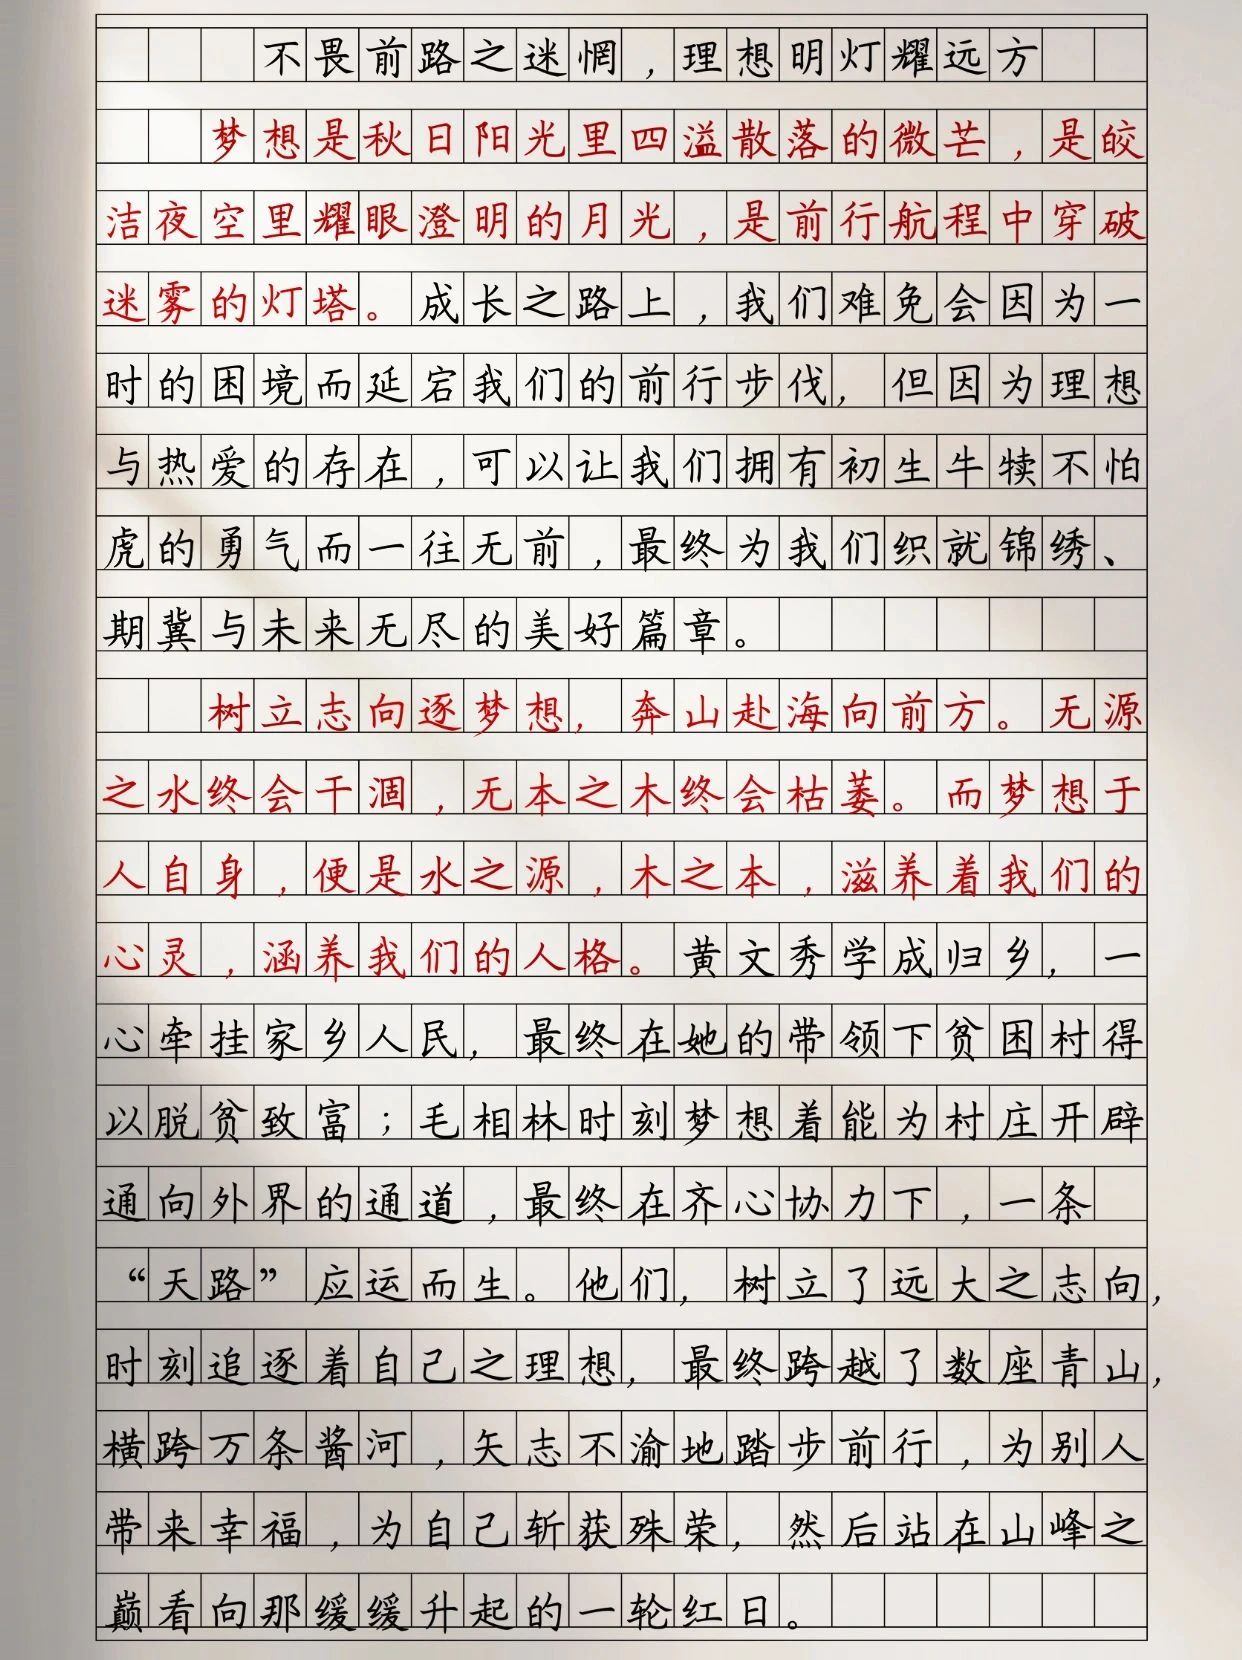 不畏前路之迷惘，理想明灯耀远方
梦想是秋日阳光里四溢散落的微芒，是皎
洁夜空里耀眼澄明的月光，是前行航程中穿破
迷雾的灯塔。成长之路上，我们难免会因为一
时的困境而延宕我们的前行步伐，但因为理想
与热爱的存在，可以让我们拥有初生牛犊不怕
虎的勇气而一往无前，最终为我们织就锦绣、
期冀与未来无尽的美好篇章。
树立志向逐梦想，奔山赴海向前方。无源
之水终会干涸，无本之木终会枯萎。而梦想于
人自身，便是水之源，木之本，滋养着我们的
心灵，涵养我们的人格。黄文秀学成归乡，一
心牵挂家乡人民，最终在她的带领下贫困村得
以脱贫致富；毛相林时刻梦想着能为村庄开辟
通向外界的通道，最终在齐心协力下，一条
“天路”应运而生。他们，树立了远大之志向，
时刻追逐着自己之理想，最终跨越了数座青山，
横跨万条酱河，矢志不渝地踏步前行，为别人
带来幸福，为自己斩获殊荣，然后站在山峰之
巅看向那缓缓升起的一轮红日。